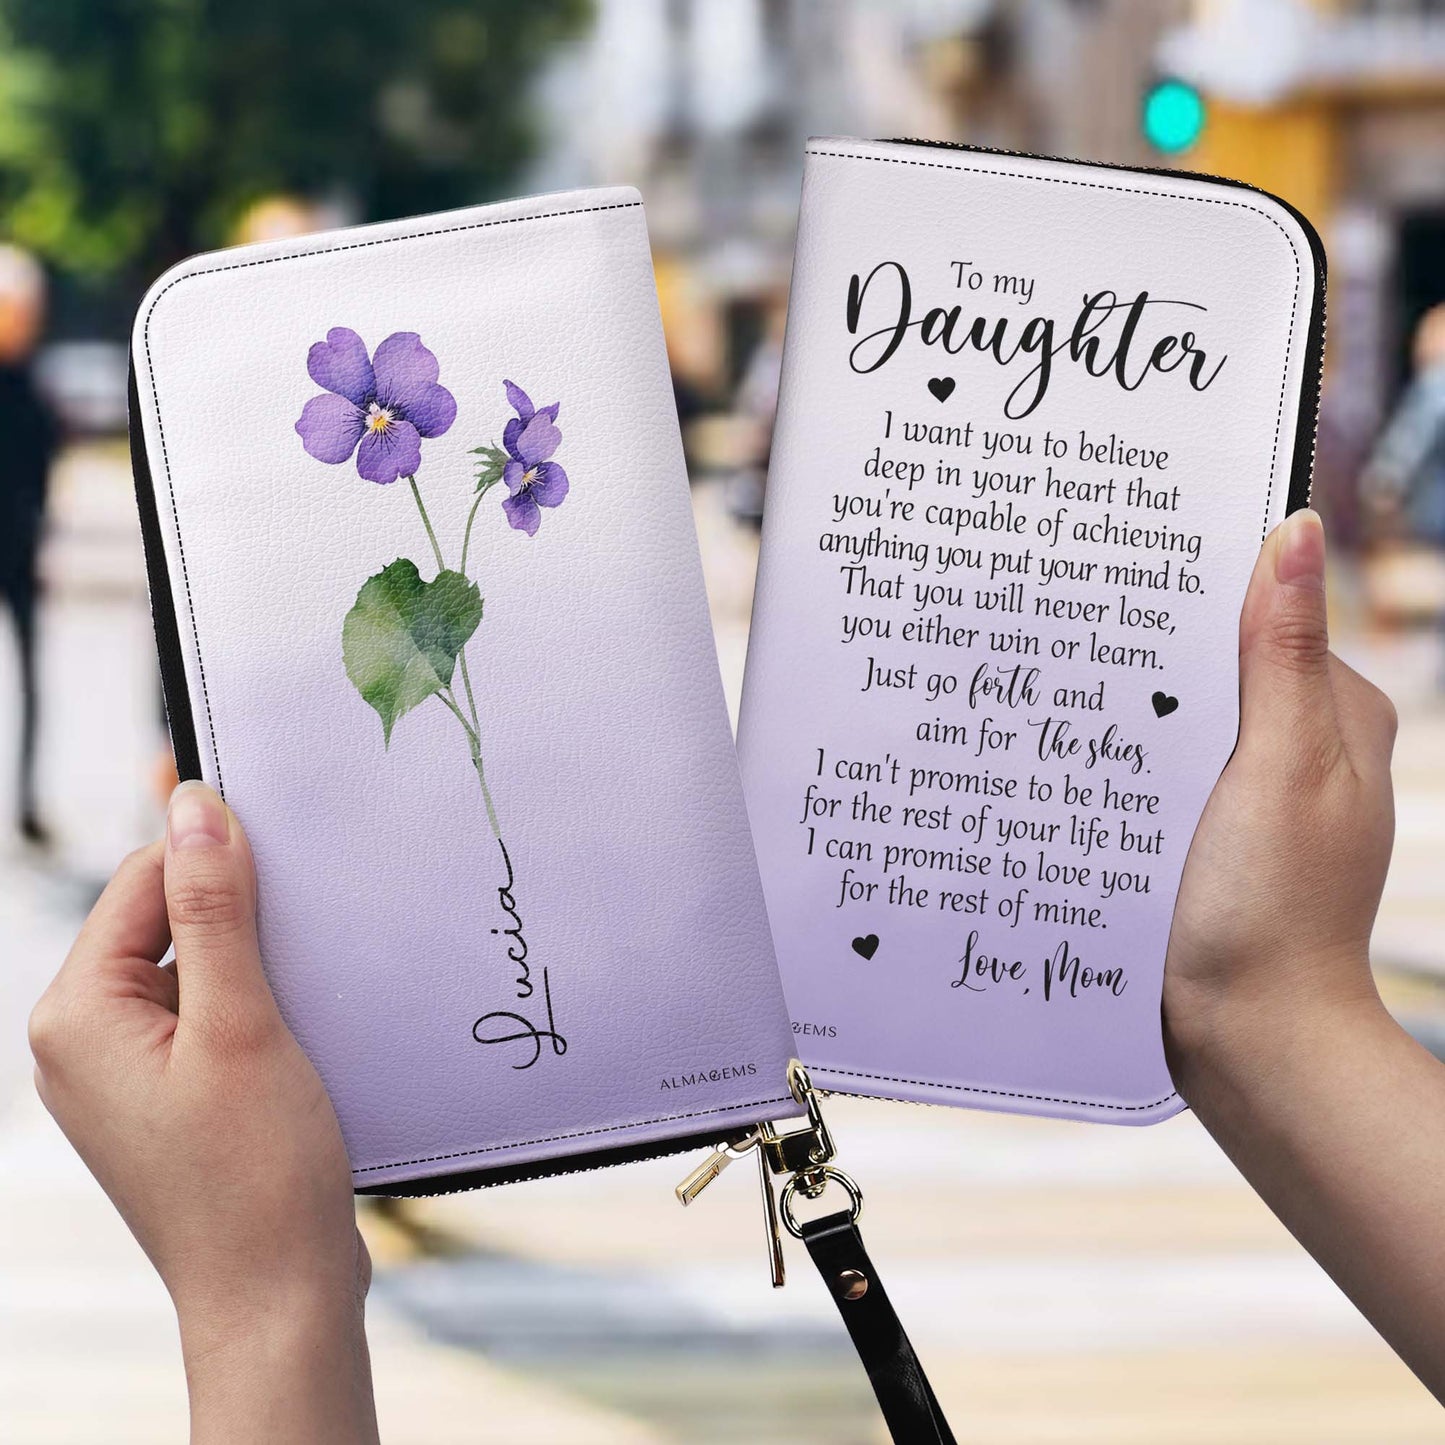 Lucia
ALMAGEMS
To my
Daughter
I want you to believe
deep in your heart that
you're capable of achieving
anything you put your mind to.
That you will never lose,
you either win or learn.
Just go forth and
aim for the skies.
I can't promise to be here
for the rest of your life but
I can promise to love you
for the rest of mine.
Love, Mom
GEMS